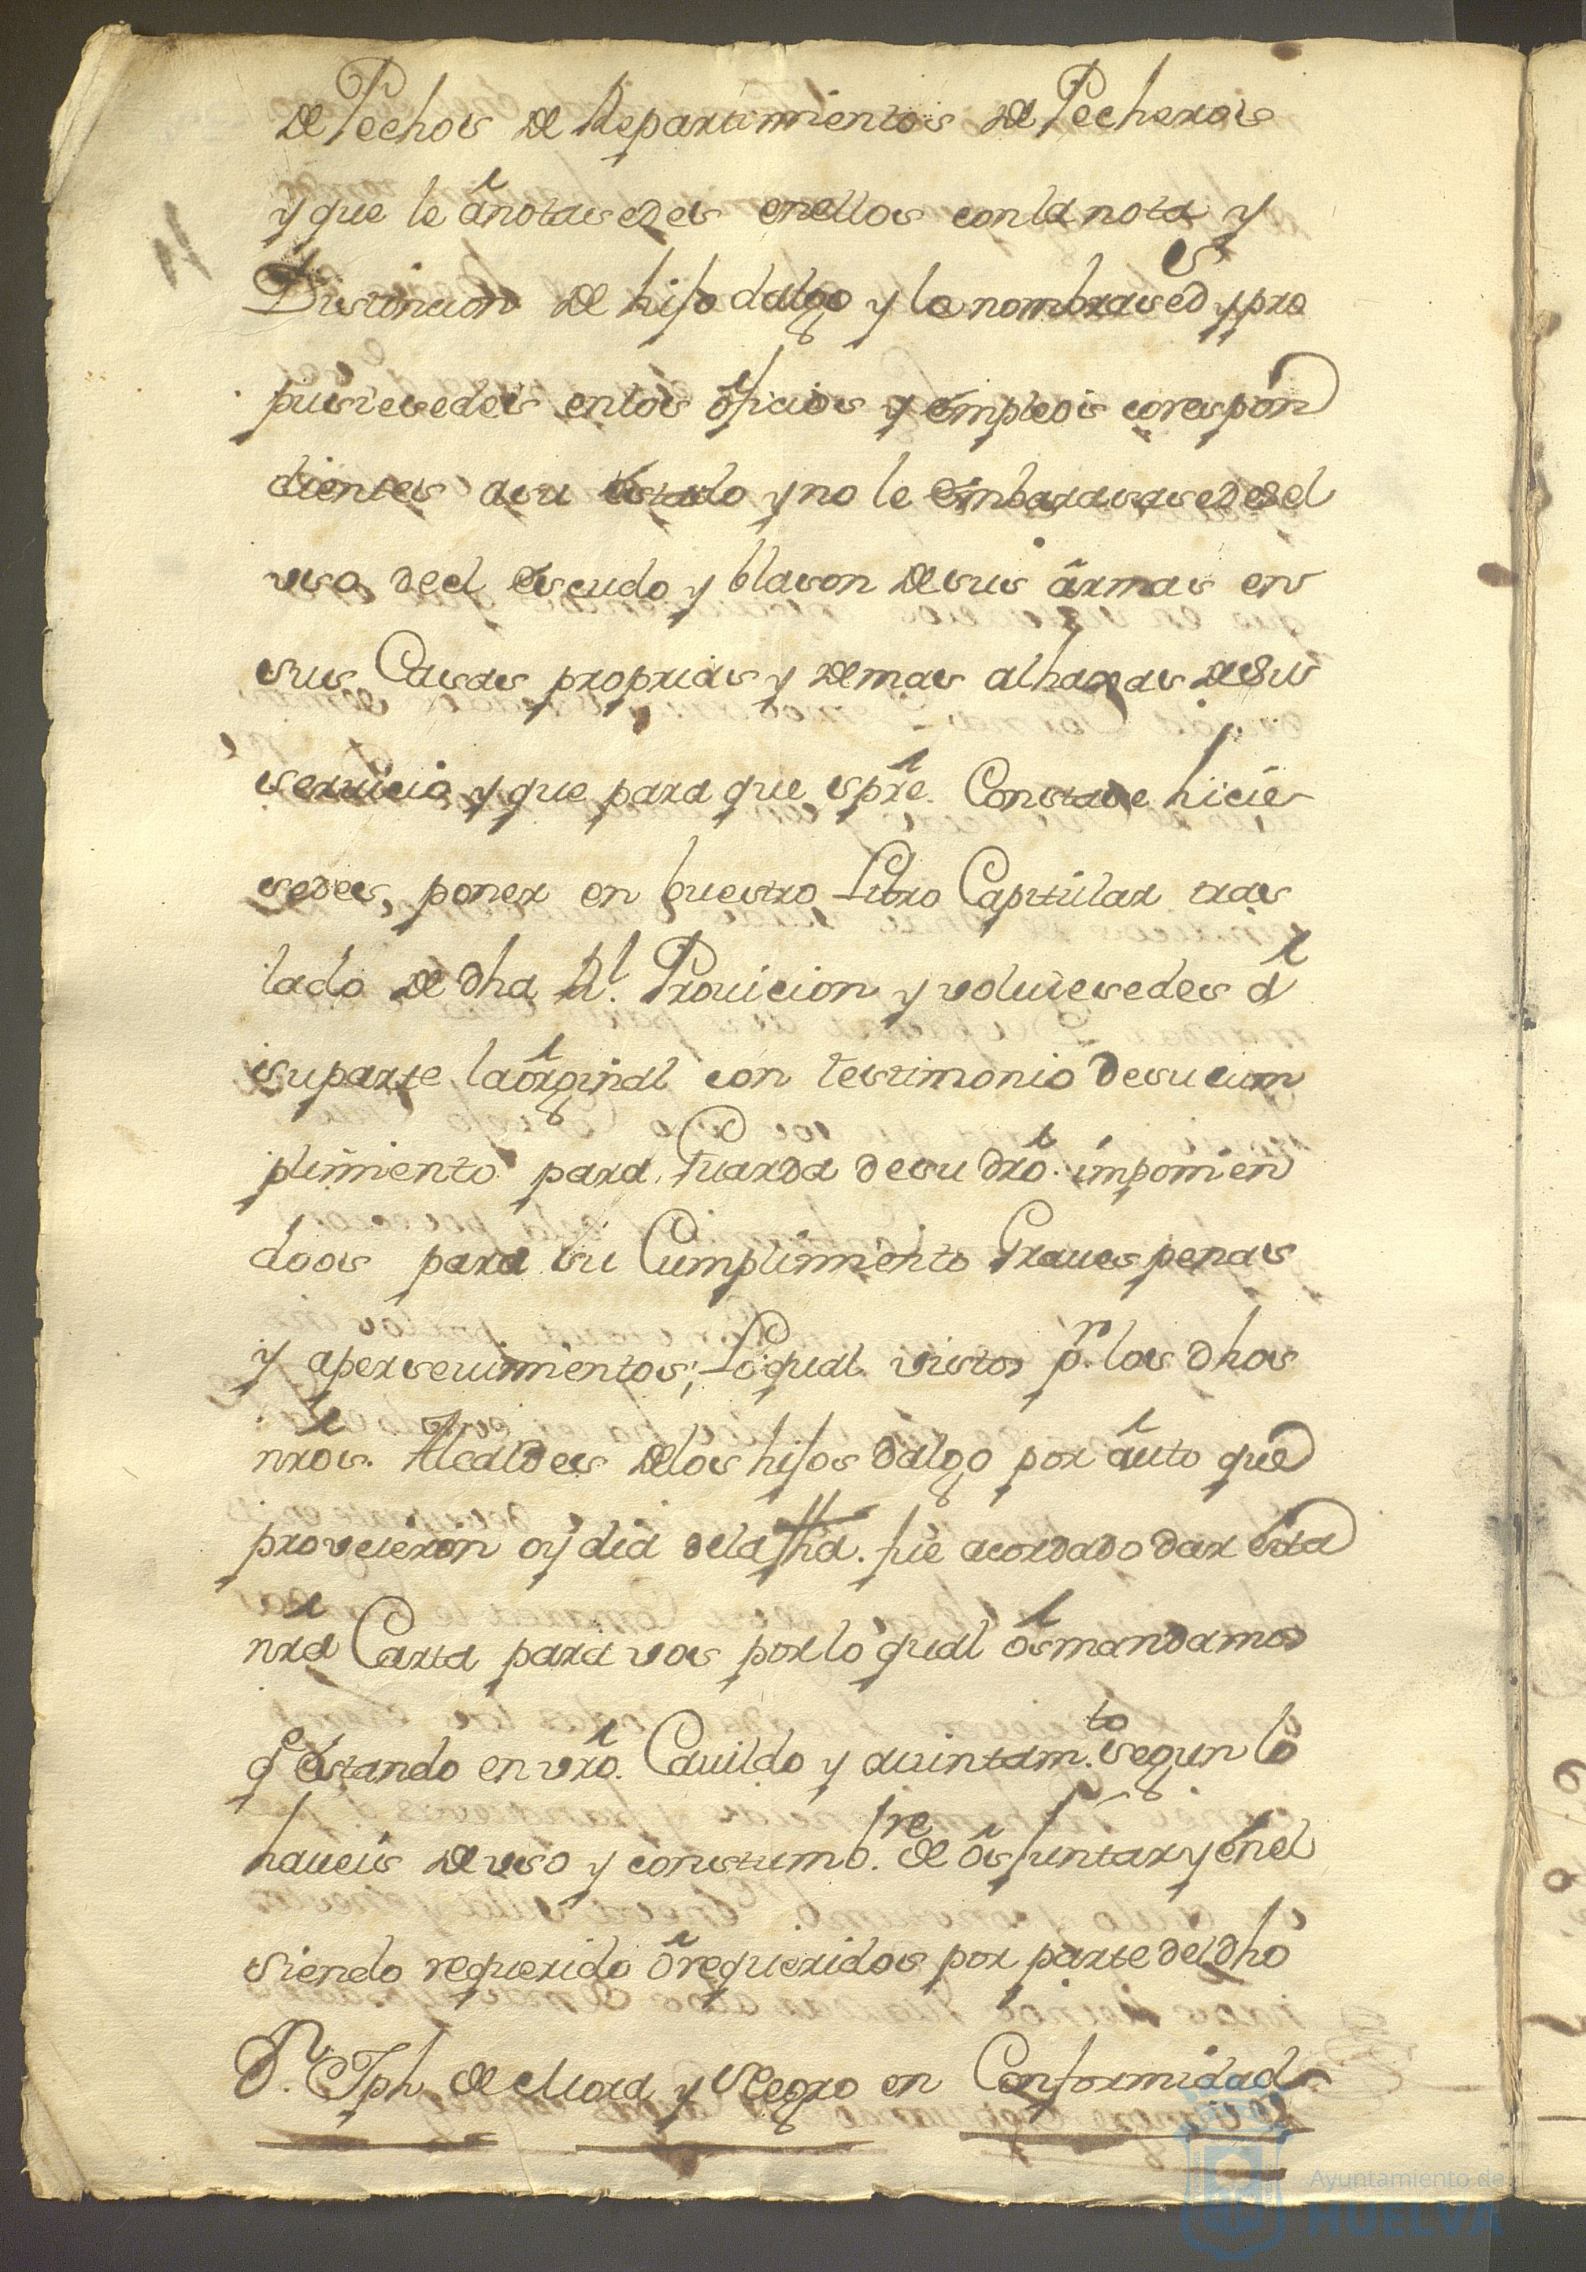 de Pechos de Repartimientos de Pecheros
y que le anotasedes enellos conla nota y
Distincion de hijo dalgo y le nombrased y pro
pusiesedeis enlos oficios y empleos corespon
dientes asu estado y no le embarasasedes el
uso de el escudo y blason desus armas en
sus Casas proprias y demas alhaxas desu
seruicio y que para que spre. Constase hicie
sedes, poner en buestro Libro Capitular tras
lado de dha Rl. Prouicion y voluiesedes a
suparte la orginal con testimonio desu cum
plimiento para Guarda desu dro. imponien
doos para su Cumplimiento Graues penas
y aperseuimientos; Lo qual visto pr. los dhos
nros. Alcaldes delos hijos dalgo por auto que
proveieron oy dia dela fha. fue acordado dar esta
nra Carta para vos por lo qual os mandamos
qe estando en vro. Cauildo y auintam.to segun lo
haueis de uso y constumb.re de os juntar y en el
siendo requerido o requeridos por parte del dho
Dn. Jph de Mora y Negro en Conformidad
Ayuntamiento de
HUELVA